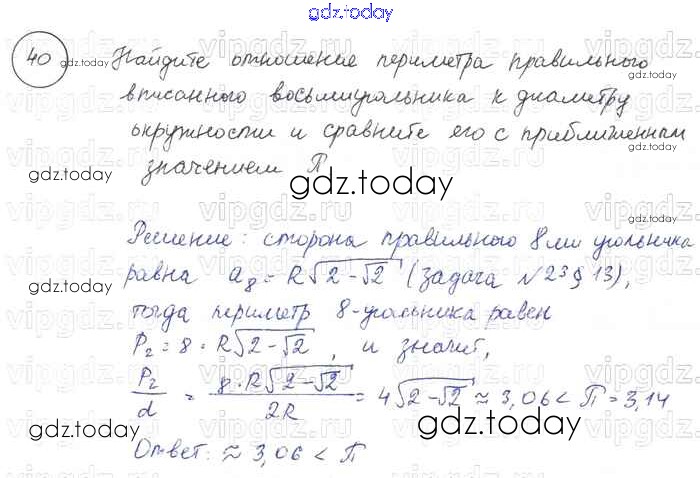 gdz.today
40 Найдите отношение периметра правильного
вписанного восьмиугольника к диаметру
окружности и сравните его с приближенным
значением П
gdz.today
Решение: сторона правильного 8ми угольника
равна a₈ = R√(2-√2) (задача №23 § 13),
тогда периметр 8-угольника равен
P₂ = 8 · R√(2-√2), и значит,
P₂/d = 8·R√(2-√2)/2R = 4√(2-√2) ≈ 3,06 < П = 3,14
Ответ: ≈ 3,06 < П
gdz.today
vipgdz.ru